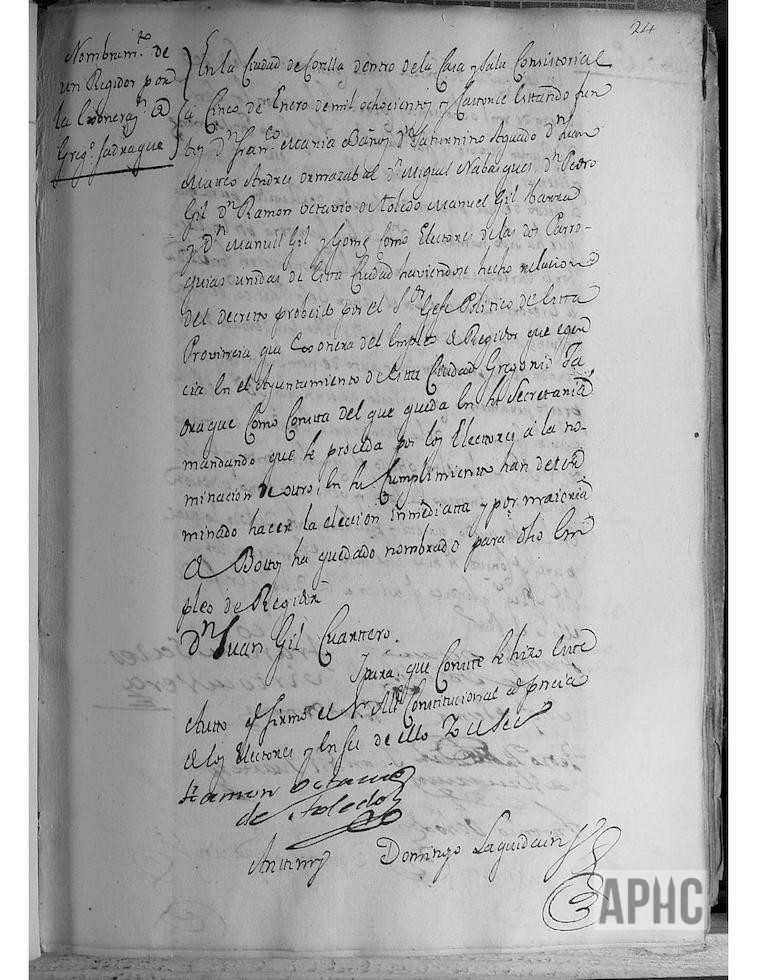 24
Nombram.to de
un Regidor por
la Exoneraz.n de
Greg.o Jadraque
En la Ciudad de Corella dentro de la Casa y Sala Consistorial
a Cinco de Enero de mil ochocientos y Catorce Estando jun
tos D.n Fran.co Maria Baños D.n Saturnino Aguado D.n Juan
Marco Andres Ormazabal D.n Miguel Nabasques, D.n Pedro
Gil D.n Ramon Octavio de Toledo Manuel Gil Ibarra
y D.n Manuel Gil y Gomez Como Electores de las dos Parro-
quias unidas de Esta Ciudad haviendose hecho relacion
del decreto probeido por el S.or Gefe Politico de Esta
Provincia que Exonera del Empleo de Regidor que eger
cia En el Ayuntamiento de Esta Ciudad Gregorio Ja
draque Como Consta del que queda En la Secretaria
mandando que se proceda por los Electores a la no-
minacion de otro, En su Cumplimiento han deter
minado hacer la eleccion inmediatta y por maioria
de Bottos ha quedado nombrado para dho Em
pleo de Regidor
D.n Juan Gil Cuarttero.
Ipara que Conste se hizo Este
Autto q.e firmó el S.r Alc.e Constitucional a presencia
de los Electores y En fee de ello Yo el Sec.o
Ramon Octavio
de Toledo
Antemy Domingo Laguidain
APHC